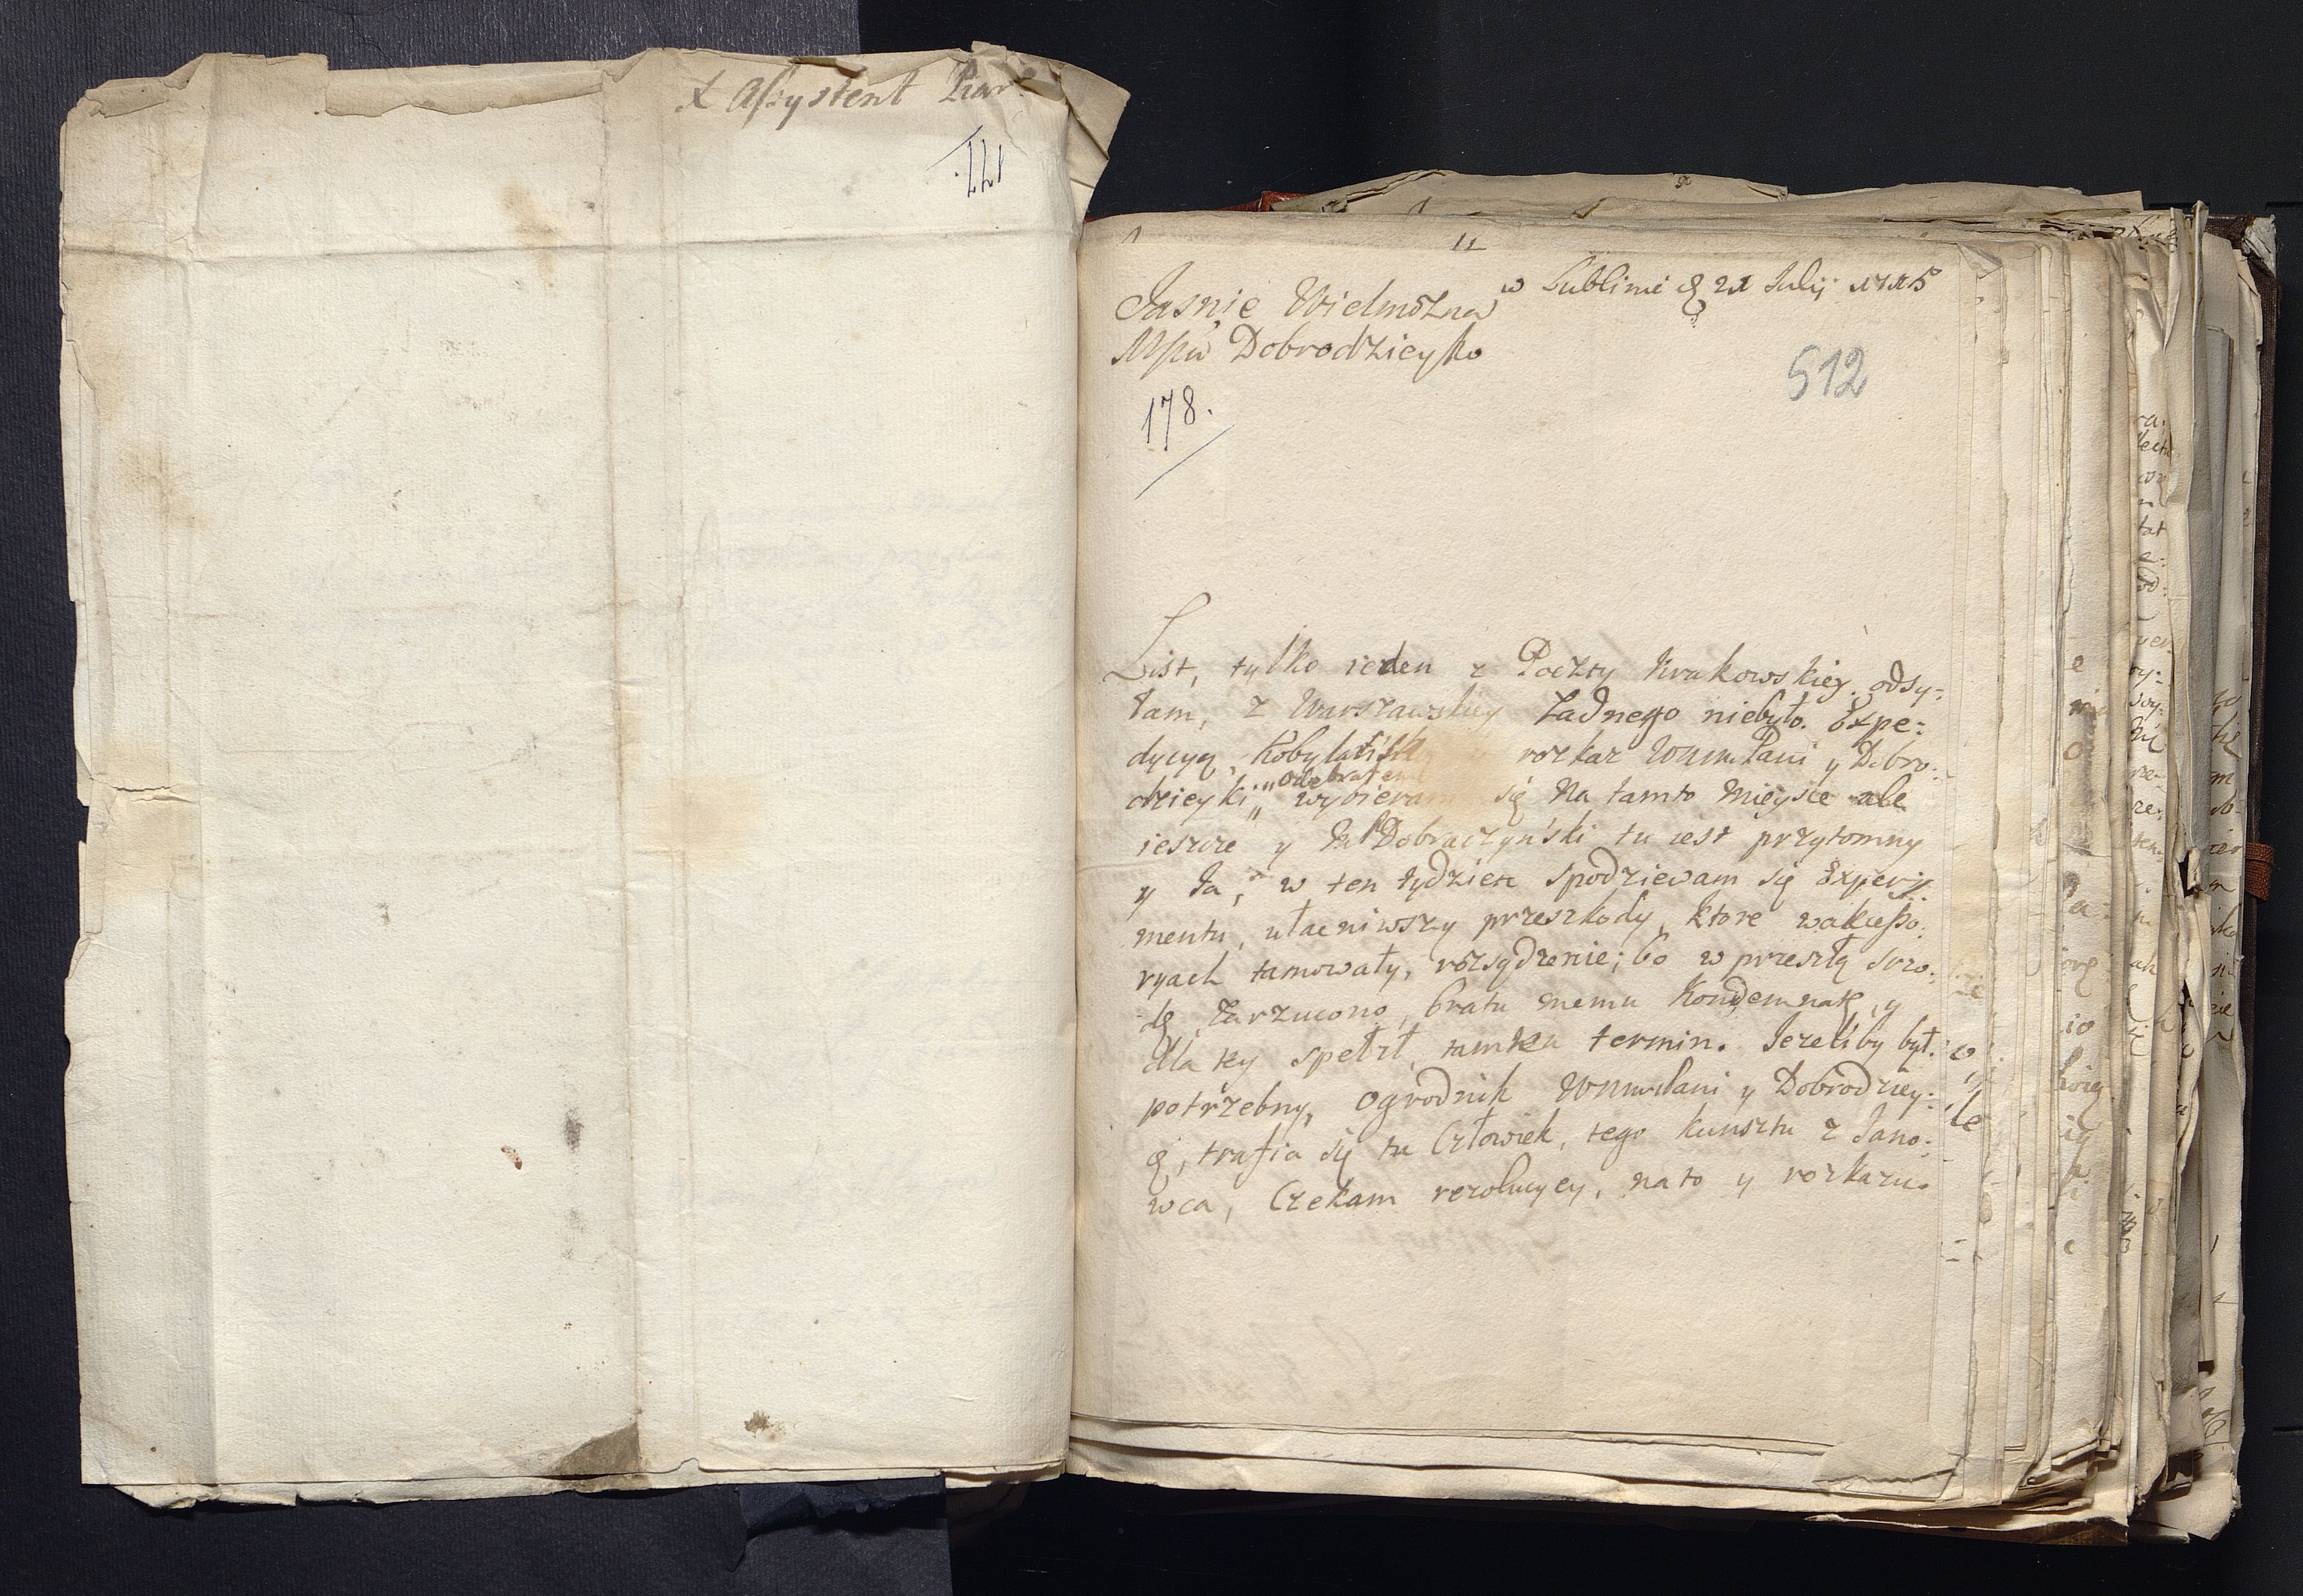 X Assystent Piar.
177.
w Lublinie 21 Julij
Jaśnie Wielmożna
Mścia Dobrodzieyko
512
178.
List, tylko ieden z Poczty Krakowskiey odsy:
łam, z Warszawskiey żadnego niebyło. Expe:
dycyą, rozkaz WMM Pani y Dobro:
dzieyki, odebrałem wybieram się na tamto mieysce ale
ieszcze y Dobraczyński tu iest przytomny
y Ja, w ten tydzień spodziewam się Experi:
mentu, ułacniwszy przeszkody, ktore
ryach tamowały, rozsądzenie; bo w przeszłą szro:
dę, zarzucono, bratu memu Kondemnatę, y
dla tey spełzł termin. Jezeliby był
potrzebny, ogrodnik WMM Pani y Dobrodziey:
, trafia się tu Człowiek, tego kunsztu z Jano:
wca, Czekam rezolucyey, na to y rozkazu.